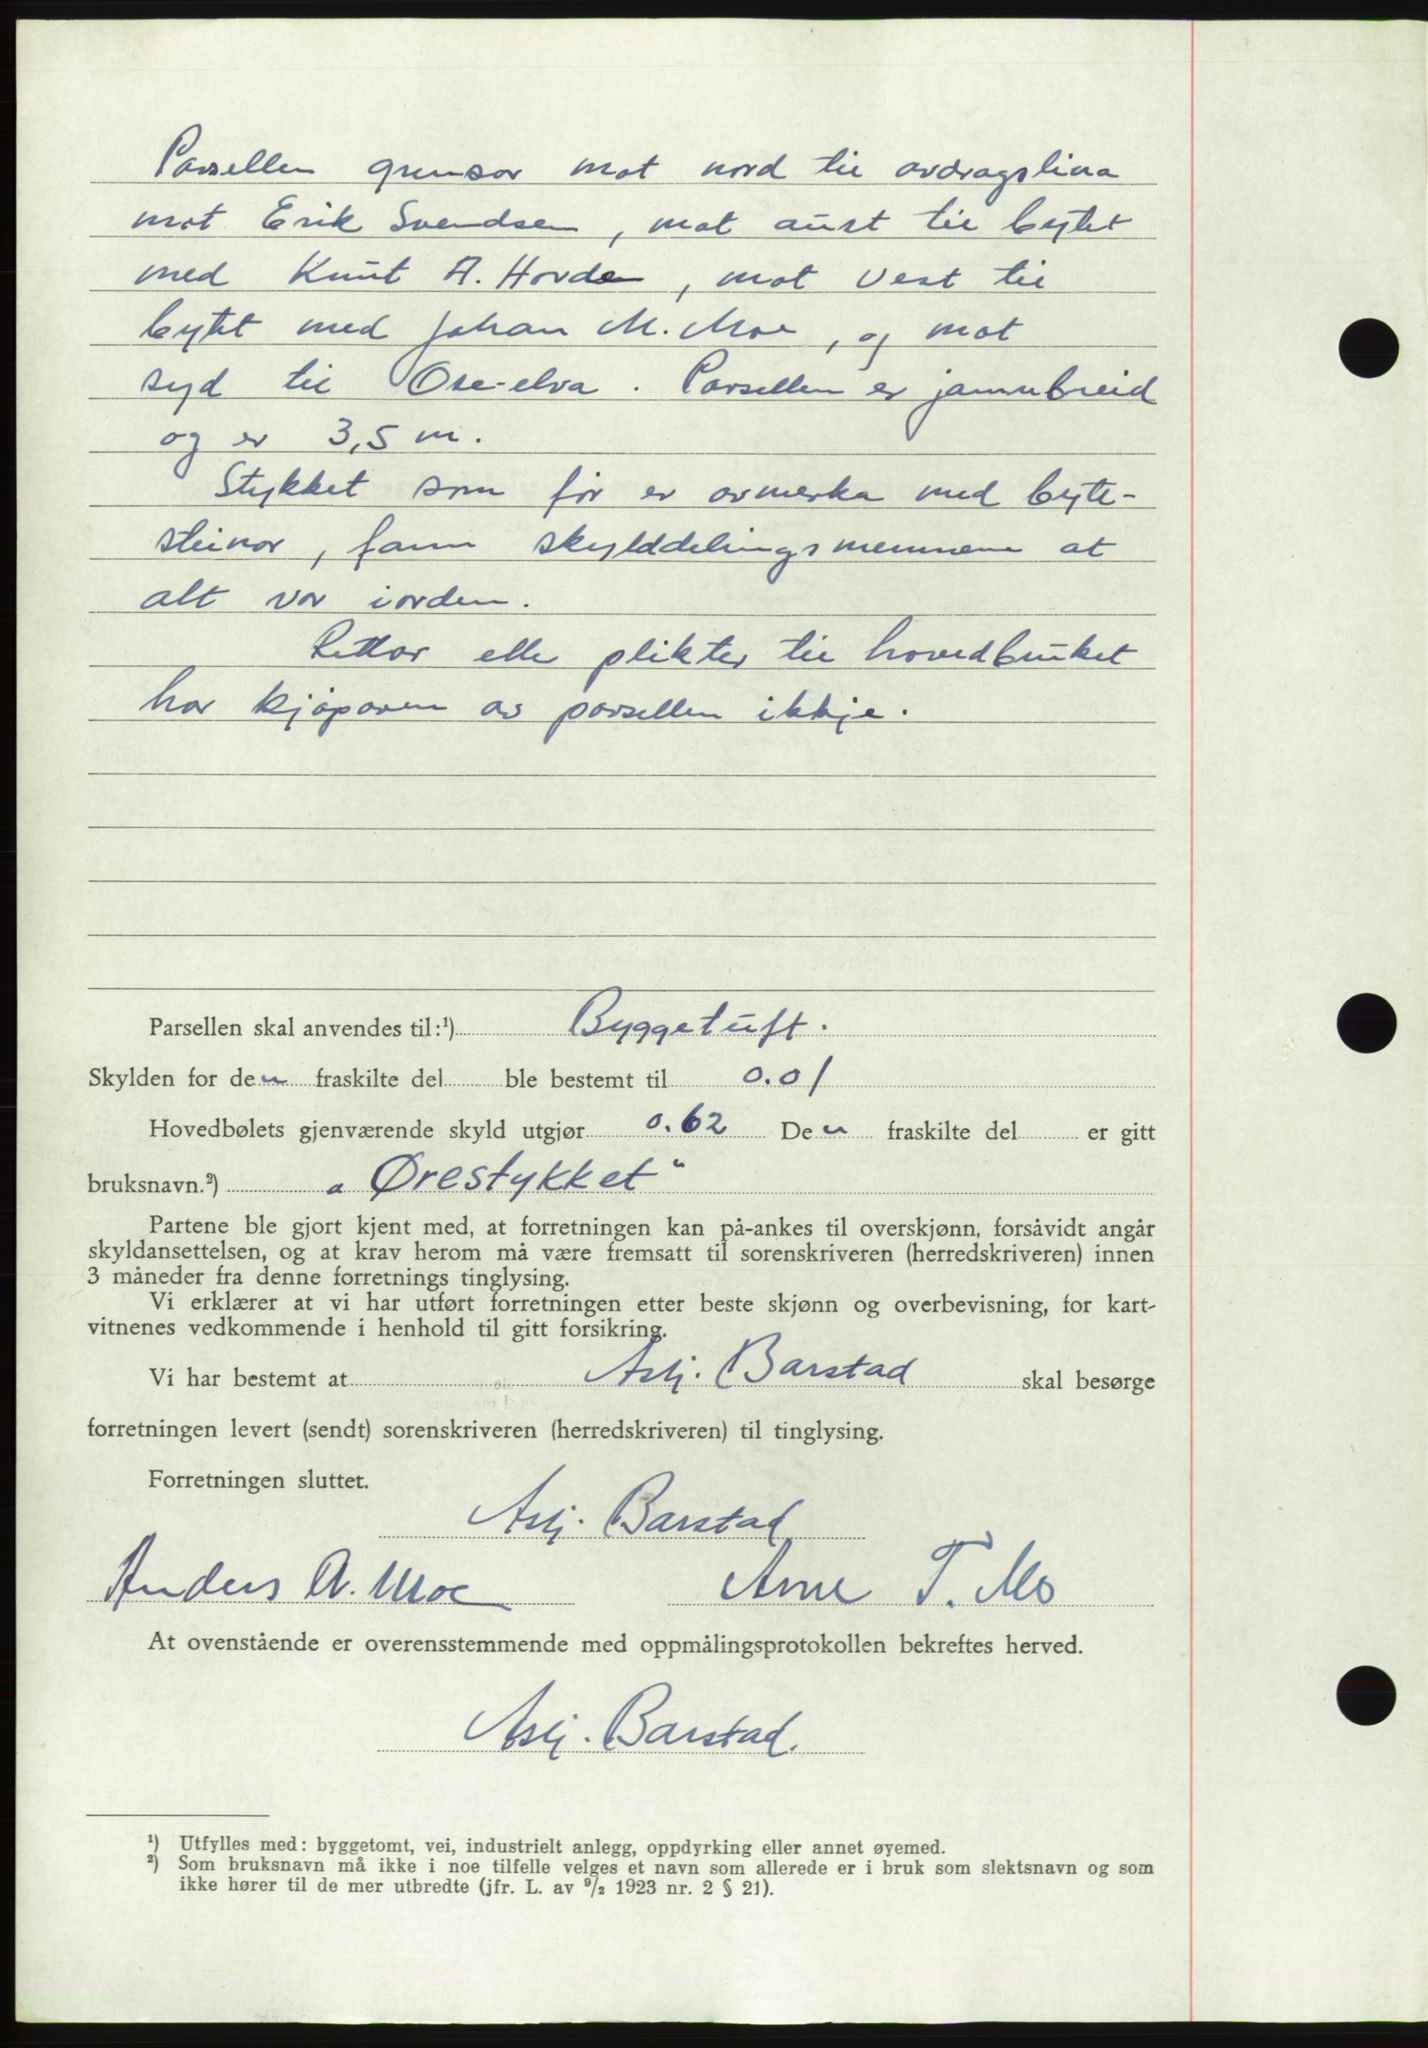 Parsellen grensar mot nord til avdragslina
mot Erik Svendsen, mot aust til bytet
med Knut A. Horde, mot vest til
bytet med Johan M. Moe, og mot
syd til Ose-elva. Parsellen er jamnbreid
og er 3,5 m.
Stykket som før er avmerka med byte-
steinar, fann skylddelingsmennene at
alt var iorden.
Rettar eller plikter til hovedbruket
har kjøparen av parsellen ikkje.
Parsellen skal anvendes til:¹) Byggetuft.
Skylden for den fraskilte del ble bestemt til 0.01
Hovedbølets gjenværende skyld utgjør 0.62 Den fraskilte del er gitt
bruksnavn.²) „Ørestykket“
Partene ble gjort kjent med, at forretningen kan på-ankes til overskjønn, forsåvidt angår
skyldansettelsen, og at krav herom må være fremsatt til sorenskriveren (herredskriveren) innen
3 måneder fra denne forretnings tinglysing.
Vi erklærer at vi har utført forretningen etter beste skjønn og overbevisning, for kart-
vitnenes vedkommende i henhold til gitt forsikring.
Vi har bestemt at Asbj. Barstad skal besørge
forretningen levert (sendt) sorenskriveren (herredskriveren) til tinglysing.
Forretningen sluttet.
Asbj. Barstad
Anders A. Moe Arne T. Mo
At ovenstående er overensstemmende med oppmålingsprotokollen bekreftes herved.
Asbj. Barstad.
¹) Utfylles med: byggetomt, vei, industrielt anlegg, oppdyrking eller annet øyemed.
²) Som bruksnavn må ikke i noe tilfelle velges et navn som allerede er i bruk som slektsnavn og som
ikke hører til de mer utbredte (jfr. L. av 9/2 1923 nr. 2 § 21).